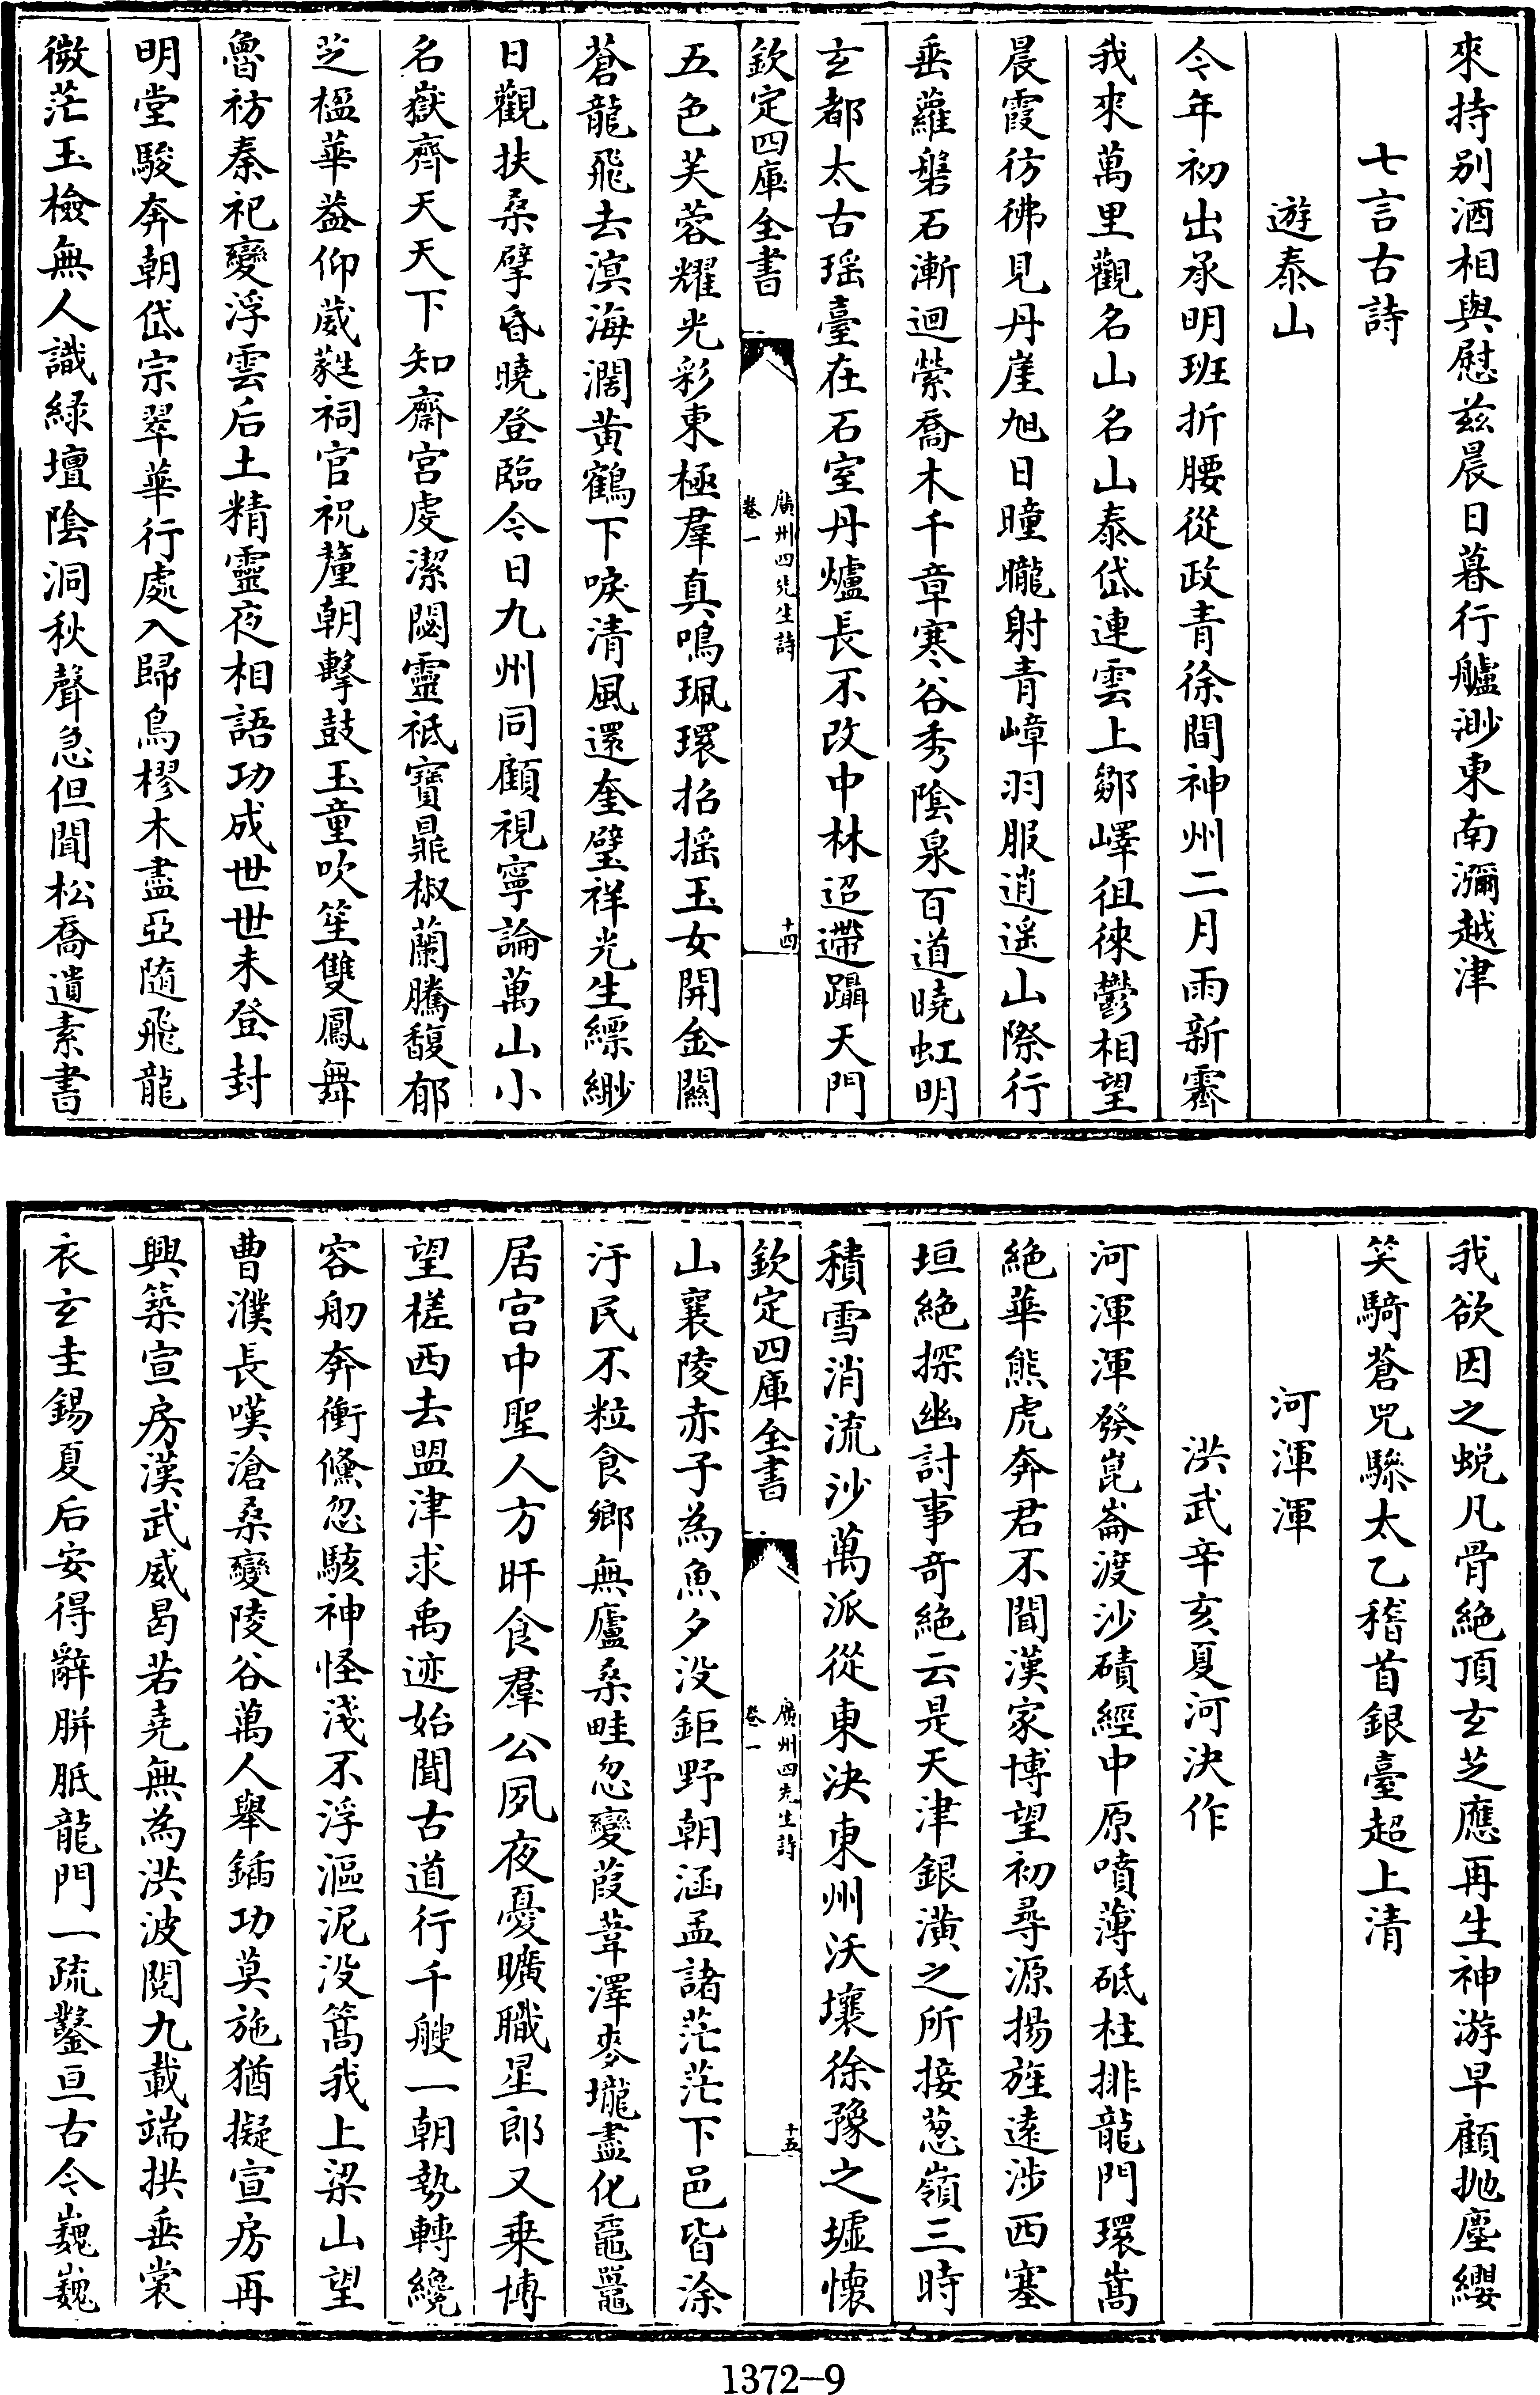 來持别酒相與慰兹晨日暮行艫渺東南瀰越津
七言古詩
遊泰山
今年初出承明班折腰從政青徐間神州二月雨新霽
我來萬里觀名山名山泰岱連雲上鄒嶧徂徠鬱相望
晨霞彷彿見丹崖旭日曈曨射青嶂羽服逍遥山際行
垂蘿磐石漸迴縈喬木千章寒谷秀陰泉百道曉虹明
玄都太古瑶臺在石室丹爐長不改中林迢遰躡天門
欽定四庫全書
廣州四先生詩
卷一
十四
五色芙蓉耀光彩東極羣真鳴珮環招摇玉女開金闗
蒼龍飛去溟海濶黄鶴下唳清風還奎璧祥光生縹緲
日觀扶桑擘昏曉登臨今日九州同顧視寧論萬山小
名嶽齊天天下知齋宫䖍潔閟靈祗寳鼎椒蘭騰馥郁
芝楹華葢仰葳蕤祠官祝釐朝擊鼓玉童吹笙雙鳳舞
魯祊秦祀變浮雲后土精靈夜相語功成世世未登封
明堂駿奔朝岱宗翠華行處入歸鳥樛木盡亞隨飛龍
微茫玉檢無人識緑壇陰洞秋聲急但聞松喬遺素書
我欲因之蜕凡骨絶頂玄芝應再生神游早顧抛塵纓
笑騎蒼兕驂太乙稽首銀臺超上清
河渾渾
洪武辛亥夏河決作
河渾渾發崑崙渡沙磧經中原噴薄砥柱排龍門環嵩
絶華熊虎奔君不聞漢家博望初尋源揚旌遠涉西塞
垣絶探幽討事奇絶云是天津銀潢之所接葱嶺三時
積雪消流沙萬派從東決東州沃壤徐豫之墟懷
欽定四庫全書
廣州四先生詩
卷一
十五
山襄陵赤子為魚夕没鉅野朝涵孟諸茫茫下邑皆涂
汙民不粒食鄉無廬桑畦忽變葭葦澤麥壠盡化黿鼉
居宫中聖人方旰食羣公夙夜憂曠職星郎又乗博
望槎西去盟津求禹迹始聞古道行千艘一朝勢轉纔
容舠奔衝儵忽駭神怪淺不浮漚泥没篙我上梁山望
曹濮長嘆滄桑變陵谷萬人舉鍤功莫施猶擬宣房再
興築宣房漢武威曷若堯無為洪波閲九載端拱垂裳
衣玄圭錫夏后安得辭胼胝龍門一疏鑿亘古今巍巍
1372-9